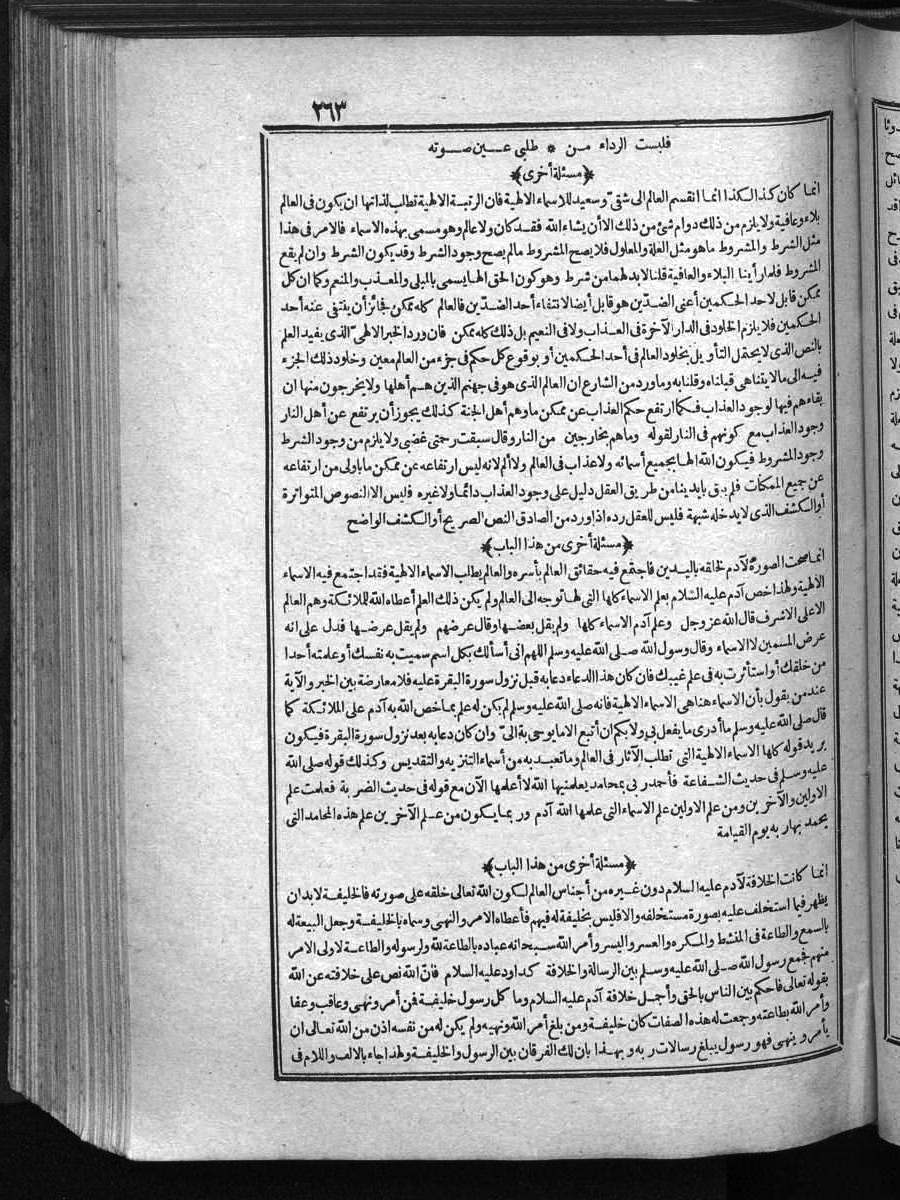 ٢٦٣
فلبست الرداء من * طلبي عين صوته
﴿مسئلة أخرى﴾
انما كان كذا لكذا انما انقسم العالم الى شقي وسعيد للاسماء الالهية فان الرتبة الالهية تطلب لذاتها ان يكون فى العالم
بلاء وعافية ولا يلزم من ذلك دوام شئ من ذلك الا أن يشاء الله فقد كان ولا عالم وهو مسمى بهذه الاسماء فالامر فى هذا
مثل الشرط والمشروط ما هو مثل العلة والمعلول فلا يصح المشروط ما لم يصح وجود الشرط وقد يكون الشرط وان لم يقع
المشروط فلما رأينا البلاء والعافية قلنا لا بد لهما من شرط وهو كون الحق الها يسمى بالمبلى والمعذب والمنعم وكما ان كل
ممكن قابل لاحد الحكمين أعنى الضدين هو قابل أيضا لانتفاء أحد الضدين فالعالم كله ممكن فجائز أن ينتفى عنه أحد
الحكمين فلا يلزم الخلود فى الدار الآخرة فى العذاب ولا فى النعيم بل ذلك كله ممكن فان ورد الخبر الالهى الذى يفيد العلم
بالنص الذى لا يحتمل التأويل بخلود العالم فى أحد الحكمين أو بوقوع كل حكم فى جزء من العالم معين وخلود ذلك الجزء
فيه الى ما لا يتناهى قبلناه وقلنا به وما ورد من الشارع ان العالم الذى هو فى جهنم الذين هم أهلها ولا يخرجون منها ان
بقاءهم فيها لوجود العذاب فكما ارتفع حكم العذاب عن ممكن ما وهم أهل الجنة كذلك يجوز أن يرتفع عن أهل النار
وجود العذاب مع كونهم فى النار لقوله وما هم بخارجين من النار وقال سبقت رحمتى غضبى ولا يلزم من وجود الشرط
وجود المشروط فيكون الله الها بجميع أسمائه ولا عذاب فى العالم ولا ألم لانه ليس ارتفاعه عن ممكن ما باولى من ارتفاعه
عن جميع الممكنات فلم يبق بايدينا من طريق العقل دليل على وجود العذاب دائما ولا غيره فليس الا النصوص المتواترة
أو الكشف الذى لا يدخله شبهة فليس للعقل رده اذا ورد من الصادق النص الصريح أو الكشف الواضح
﴿مسئلة أخرى من هذا الباب﴾
انما صحت الصورة لآدم لخلقه باليدين فاجتمع فيه حقائق العالم بأسره والعالم يطلب الاسماء الالهية فقد اجتمع فيه الاسماء
الالهية ولهذا خص آدم عليه السلام بعلم الاسماء كلها التى لها توجه الى العالم ولم يكن ذلك العلم أعطاه الله للملائكة وهم العالم
الاعلى الاشرف قال الله عز وجل وعلم آدم الاسماء كلها ولم يقل بعضها وقال عرضهم ولم يقل عرضها فدل على انه
عرض المسمين لا الاسماء وقال رسول الله صلى الله عليه وسلم اللهم انى أسألك بكل اسم سميت به نفسك أو علمته أحدا
من خلقك أو استأثرت به فى علم غيبك فان كان هذا الدعاء دعا به قبل نزول سورة البقرة عليه فلا معارضة بين الخبر والآية
عند من يقول بأن الاسماء هنا هى الاسماء الالهية فانه صلى الله عليه وسلم لم يكن له علم بما خص الله به آدم على الملائكة كما
قال صلى الله عليه وسلم ما أدرى ما يفعل بى ولا بكم ان أتبع الا ما يوحى به الى وان كان دعا به بعد نزول سورة البقرة فيكون
يريد قوله كلها الاسماء الالهية التى تطلب الآثار فى العالم وما تعبد به من أسماء التنزيه والتقديس وكذلك قوله صلى الله
عليه وسلم فى حديث الشفاعة فأحمد ربى بمحامد يعلمنيها الله لا أعلمها الآن مع قوله فى حديث الضربة فعلمت علم
الاولين والآخرين ومن علم الاولين علم الاسماء التى علمها الله آدم وربما يكون من علم الآخرين علم هذه المحامد التى
يحمد بها ربه يوم القيامة
﴿مسئلة أخرى من هذا الباب﴾
انما كانت الخلافة لآدم عليه السلام دون غيره من أجناس العالم لكون الله تعالى خلقه على صورته فالخليفة لا بد ان
يظهر فيما استخلف عليه بصورة مستخلفه والا فليس بخليفة له فيهم فأعطاه الامر والنهى وسماه بالخليفة وجعل البيعة له
بالسمع والطاعة فى المنشط والمكره والعسر واليسر وأمر الله سبحانه عباده بالطاعة لله ولرسوله والطاعة لاولى الامر
منهم فجمع رسول الله صلى الله عليه وسلم بين الرسالة والخلافة كداود عليه السلام فان الله نص على خلافته عن الله
بقوله تعالى فاحكم بين الناس بالحق وأجمل خلافة آدم عليه السلام وما كل رسول خليفة فمن أمر ونهى وعاقب وعفا
وأمر الله بطاعته وجمعت له هذه الصفات كان خليفة ومن بلغ أمر الله ونهيه ولم يكن له من نفسه اذن من الله تعالى ان
يأمر وينهى فهو رسول يبلغ رسالات ربه وبهذا بان لك الفرقان بين الرسول والخليفة ولهذا جاء بالالف واللام فى